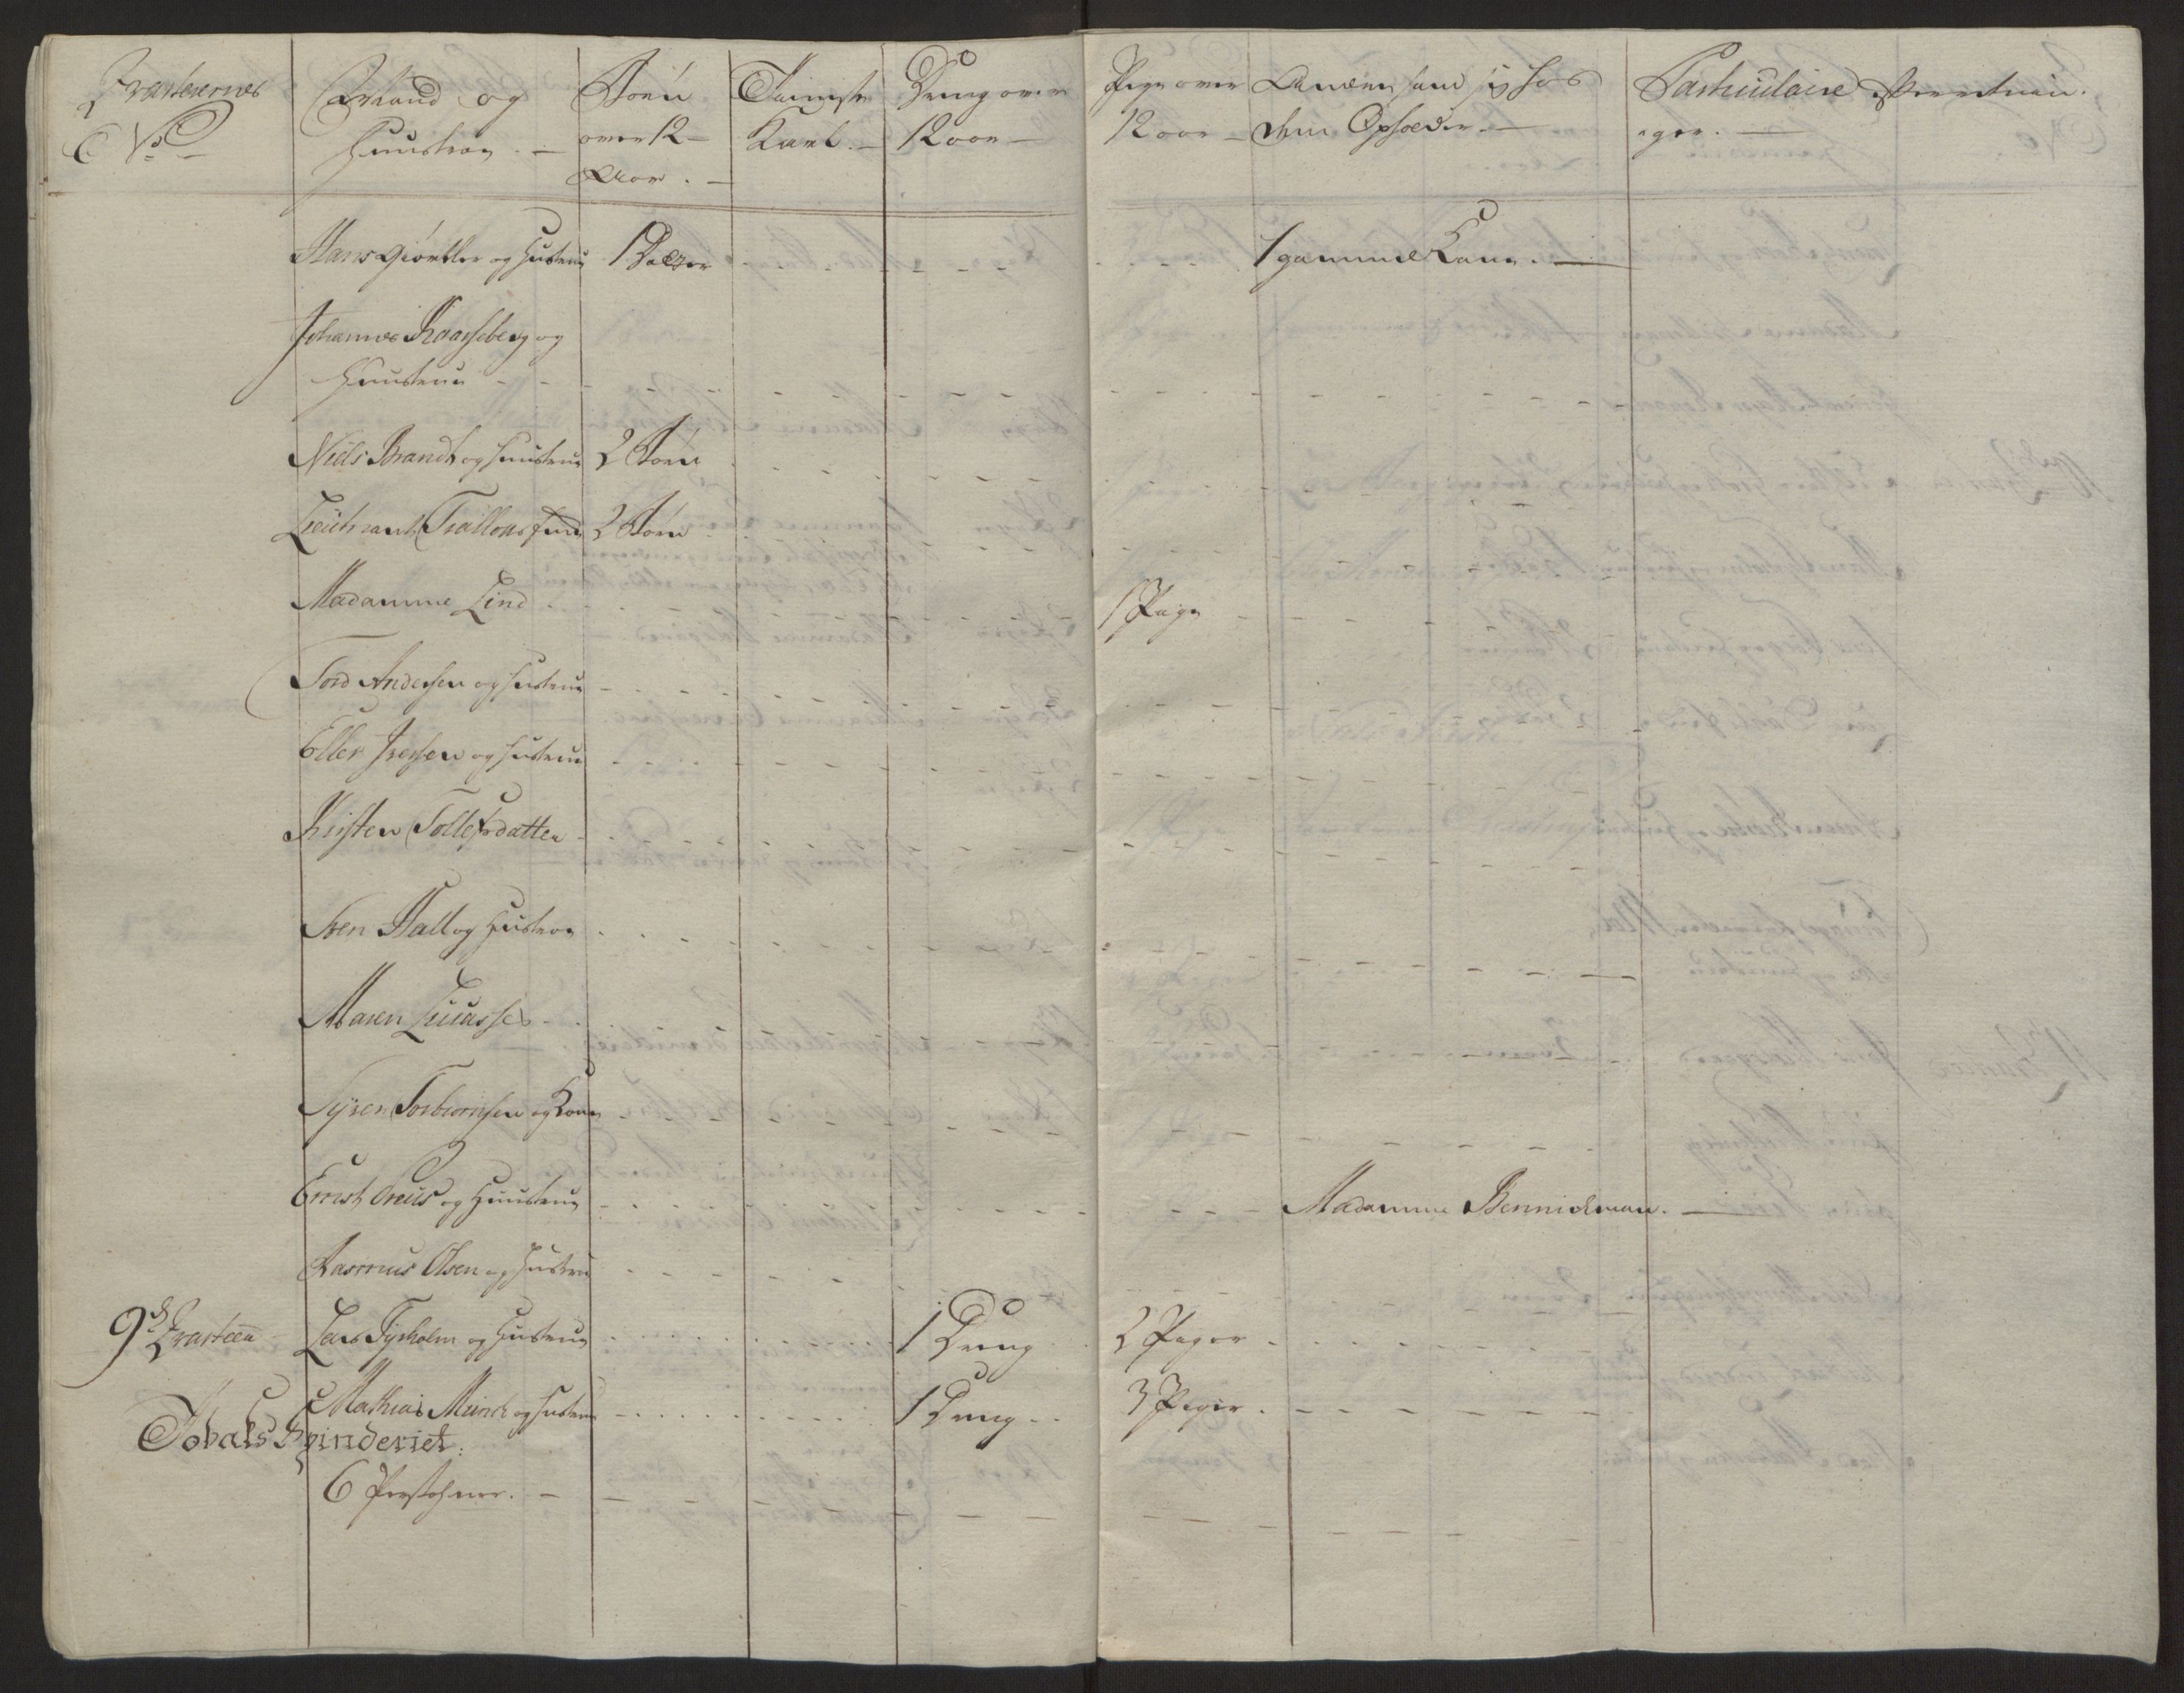 Qvarterernes No
Ægtemand og Huustroe.
Børn over 12 Aar.
Tienniste Karl.
Dreng over 12 aar
Pige over 12 aar
Anden som sig hos dem Opholder.
Particulaire
Mand Giørtler og Hustrue 1 Datter 1 gammel Kone.
Johannes Kaasseberg og
Huustrue
Niels Brandt og Huustrue 2 Børn
Lieutnant Trallous Enke 2 Børn
Madamme Lind 1 Pige
Tord Andersen og Hustrue
Eller Iversen og Hustrue
Kirsten Tollefsdatter
Sven Hall og Hustroe
Maren Lucasses
Syver Torbiørnsen og Kone
Ernst Preus og Huustrue Madamme Bennichman.
Rasmus Olsen og Hustrue
9de Qvarteer Lars Fyrholm og Hustrue 1 Dreng 2 Piger
Mathias Münch og Hustrue 1 Dreng 3 Piger
Tobaks Spinderiet.
6 Persohner.